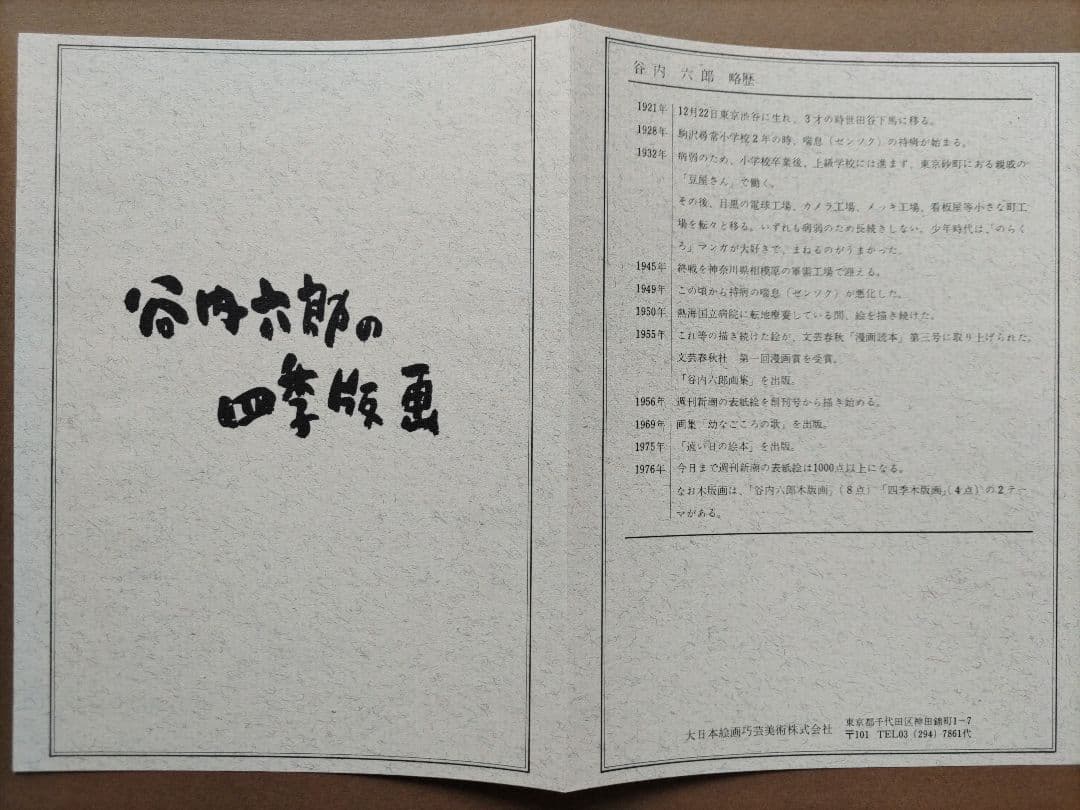 谷内六郎の
四季版画
谷内 六郎 略歴
1921年 12月22日東京渋谷に生れ、3才の時世田谷下馬に移る。
1928年 駒沢尋常小学校2年の時、喘息(ゼンソク)の持病が始まる。
1932年 病弱のため、小学校卒業後、上級学校には進まず、東京砂町にある親戚の
「豆屋さん」で働く。
その後、目黒の電球工場、カメラ工場、メッキ工場、看板屋等小さな町工
場を転々と移る。いずれも病弱のため長続きしない。少年時代は、「のらく
ろ」マンガが大好きで、まねるのがうまかった。
1945年 終戦を神奈川県相模原の軍需工場で迎える。
1949年 この頃から持病の喘息(ゼンソク)が悪化した。
1950年 熱海国立病院に転地療養している間、絵を描き続けた。
1955年 これ等の描き続けた絵が、文芸春秋「漫画読本」第三号に取り上げられた。
文芸春秋社 第一回漫画賞を受賞。
「谷内六郎画集」を出版。
1956年 週刊新潮の表紙絵を創刊号から描き始める。
1969年 画集「幼なごころの歌」を出版。
1975年 「遠い日の絵本」を出版。
1976年 今日まで週刊新潮の表紙絵は1000点以上になる。
なお木版画は、「谷内六郎木版画」(8点)「四季木版画」(4点)の2テー
マがある。
大日本絵画巧芸美術株式会社
東京都千代田区神田錦町1-7
〒101 TEL03(294)7861代